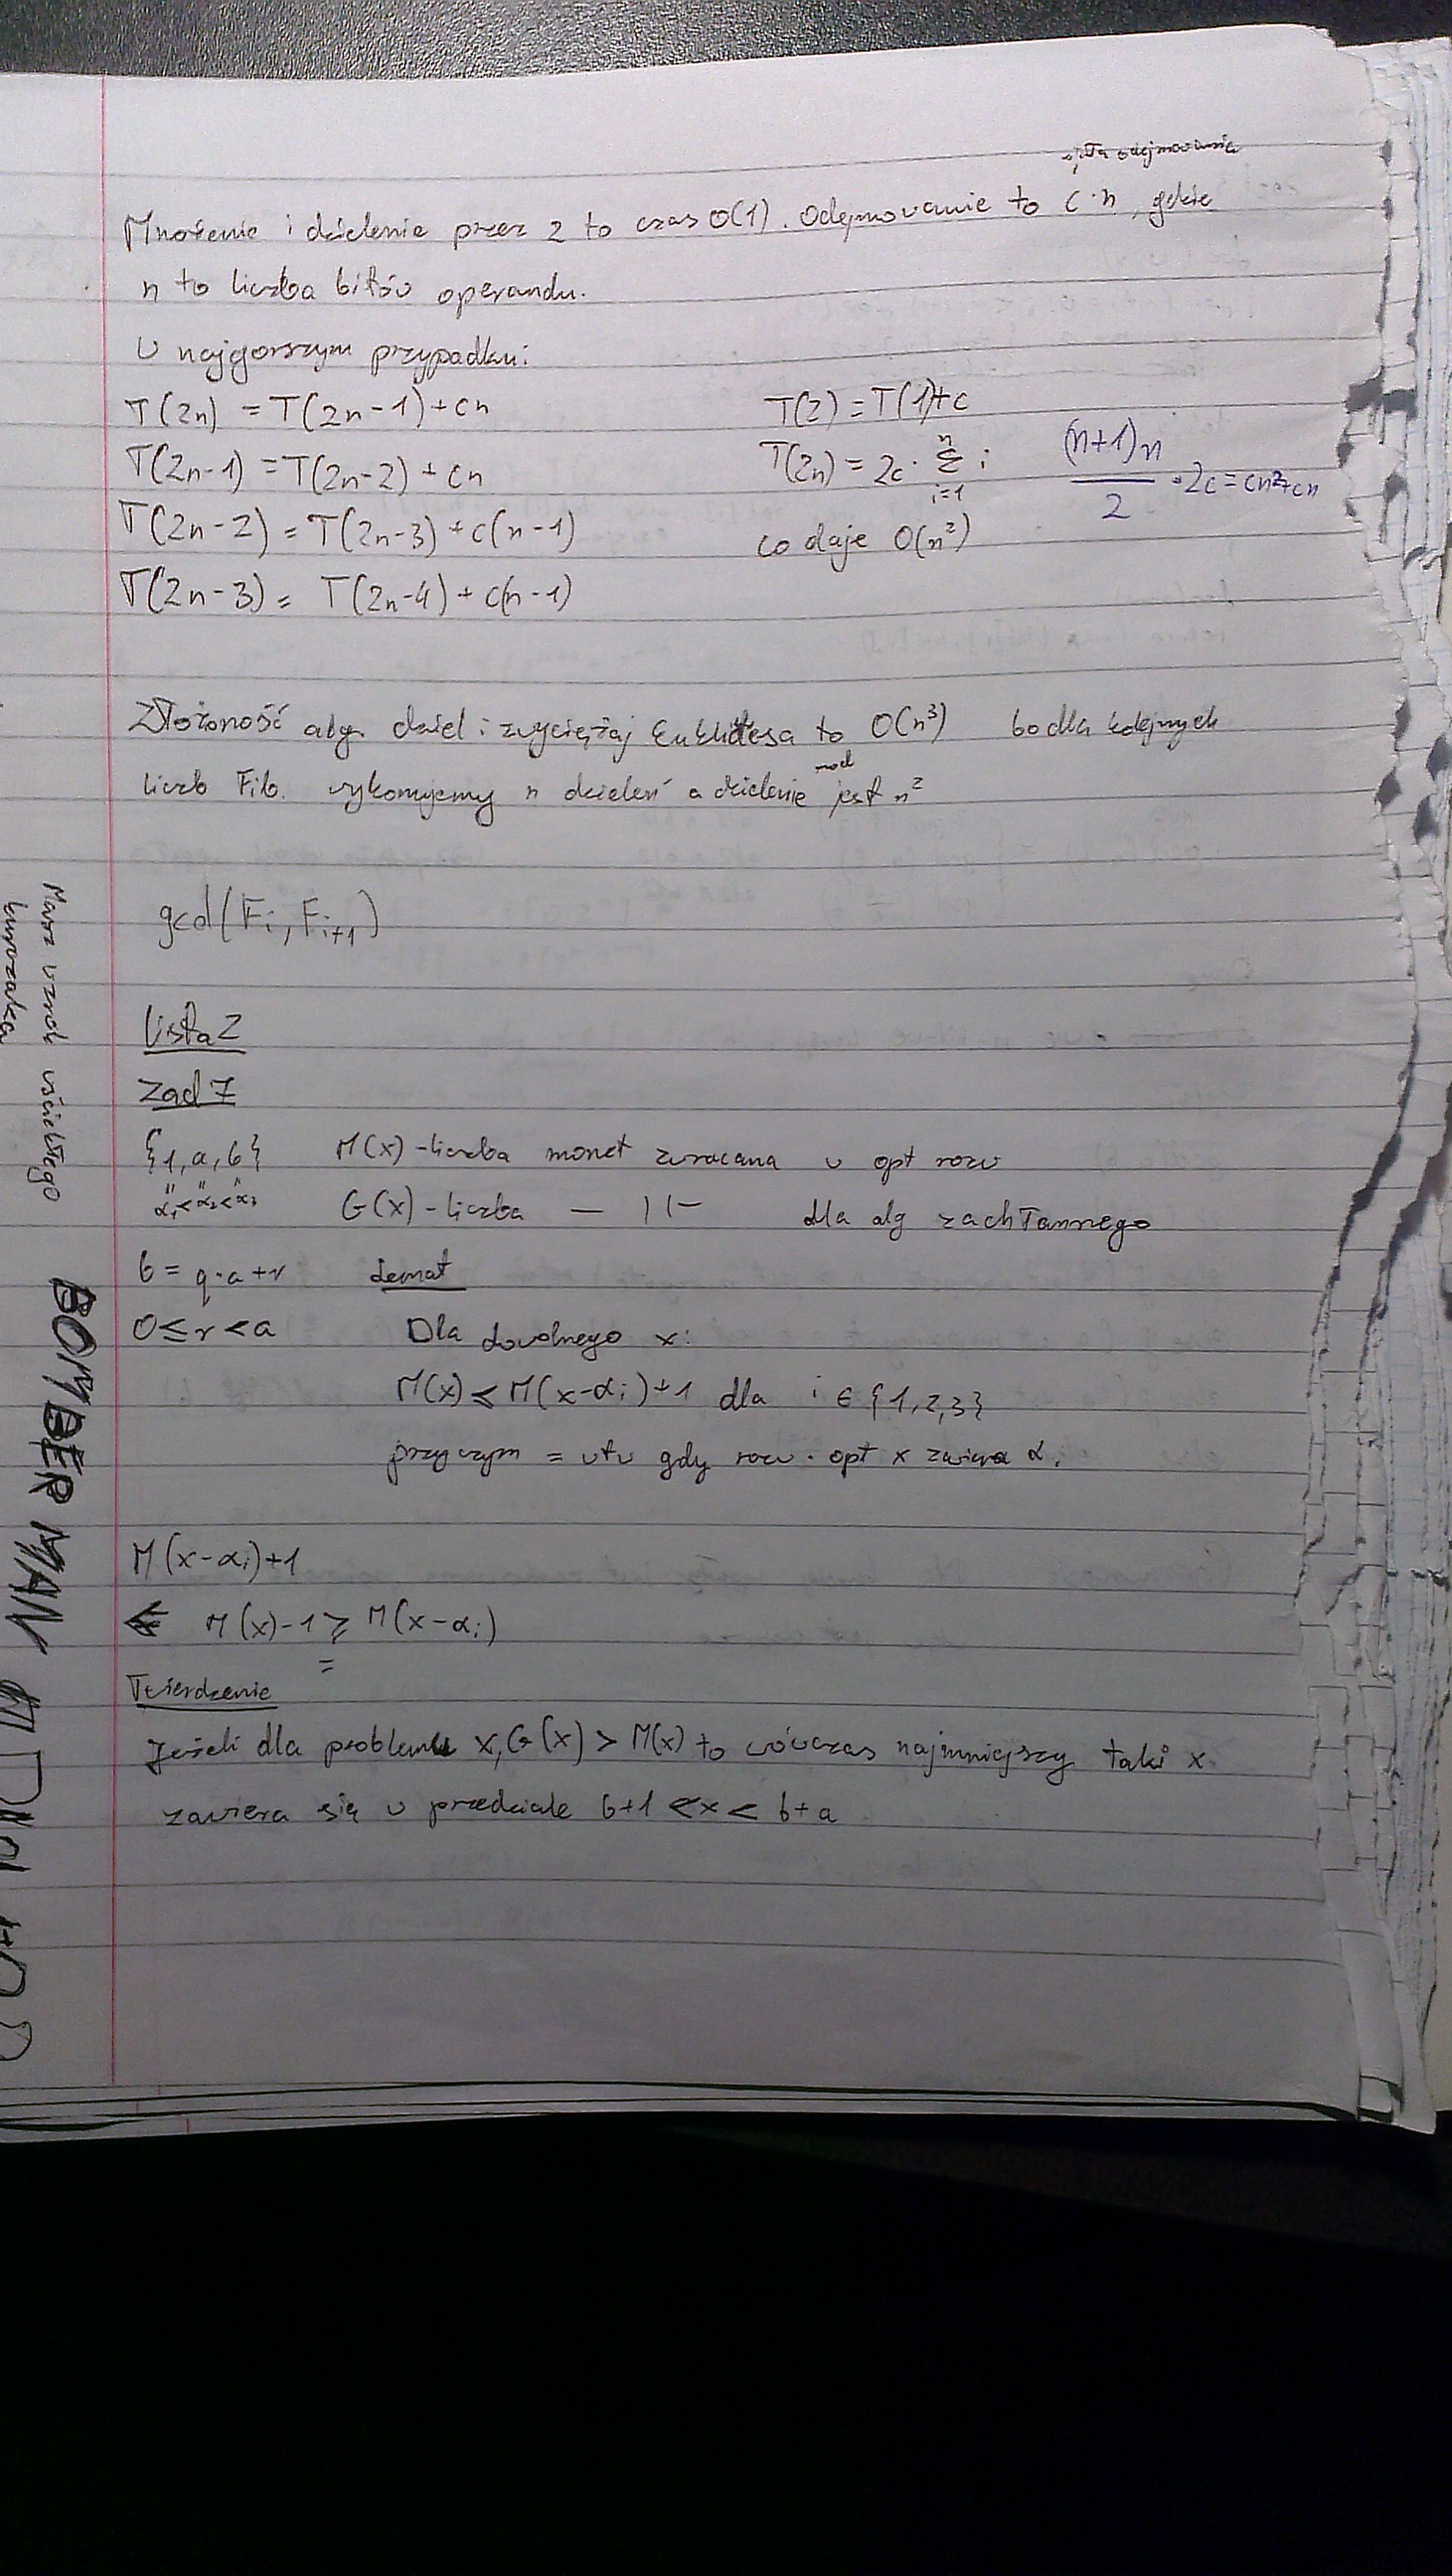 Mnożenie i dzielenie przez 2 to czas O(1). Odejmowanie to c·n, gdzie
n to liczba bitów operandu.
W najgorszym przypadku:
T(2n) = T(2n-1)+cn
T(2n-1) = T(2n-2) + cn
T(2n-2) = T(2n-3) + c(n-1)
T(2n-3) = T(2n-4) + c(n-1)
T(2) = T(1)+c
T(2n) = 2c · n Σ i=1 i
co daje O(n²)
(n+1)n / 2 · 2c = cn²+cn
Złożoność alg. dziel i zwyciężaj Euklidesa to O(n³) bo dla kolejnych
liczb Fib. wykonujemy n dzieleń a dzielenie mod jest n²
gcd(Fi, Fi+1)
Lista 2
Zad 7
{1, a, b} M(x) - liczba monet zwracana w opt rozw
α1 < α2 < α3 G(x) - liczba — || — dla alg zachłannego
b = q·a+r Lemat
0 ≤ r < a Dla dowolnego x:
M(x) ≤ M(x-αi)+1 dla i ∈ {1,2,3}
przy czym = wtw gdy rozw. opt x zawiera αi
M(x-αi)+1
M(x)-1 ≥ M(x-αi)
=
Twierdzenie
Jeżeli dla problemu x, G(x) > M(x) to wówczas najmniejszy taki x
zawiera się w przedziale b+1 < x < b+a
Masz wzrok wściekłego
kurczaka
BOMBER MAN